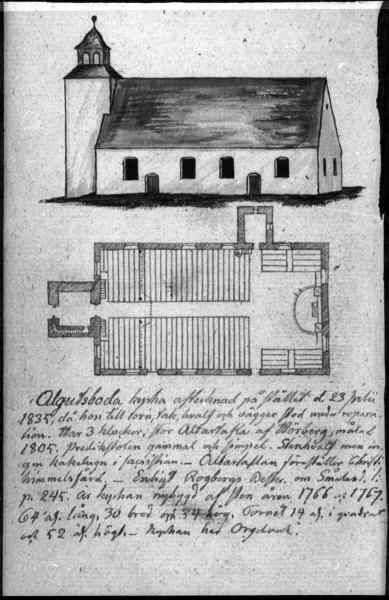 Algutsboda kyrka aftecknad på stället d. 23 Julii
1835, då hon till torn, tak, hvalf och väggar stod under repara-
tion. Har 3 klockor. Stor Altartafla af Hörberg, målad
1805. Predikstolen gammal och simpel. Stenhvalf men in-
gen kakelugn i sacristian. – Altartaflan föreställer Christi
himmelsfärd. – Enligt Rogbergs Beskr. om Småland
p. 245. är kyrkan nybygd af sten åren 1766 och 1767,
64 al. lång, 30 bred och 34 hög. Tornet 14 al. i quadrat
och 52 al. högt. – Kyrkan har Orgelverk.